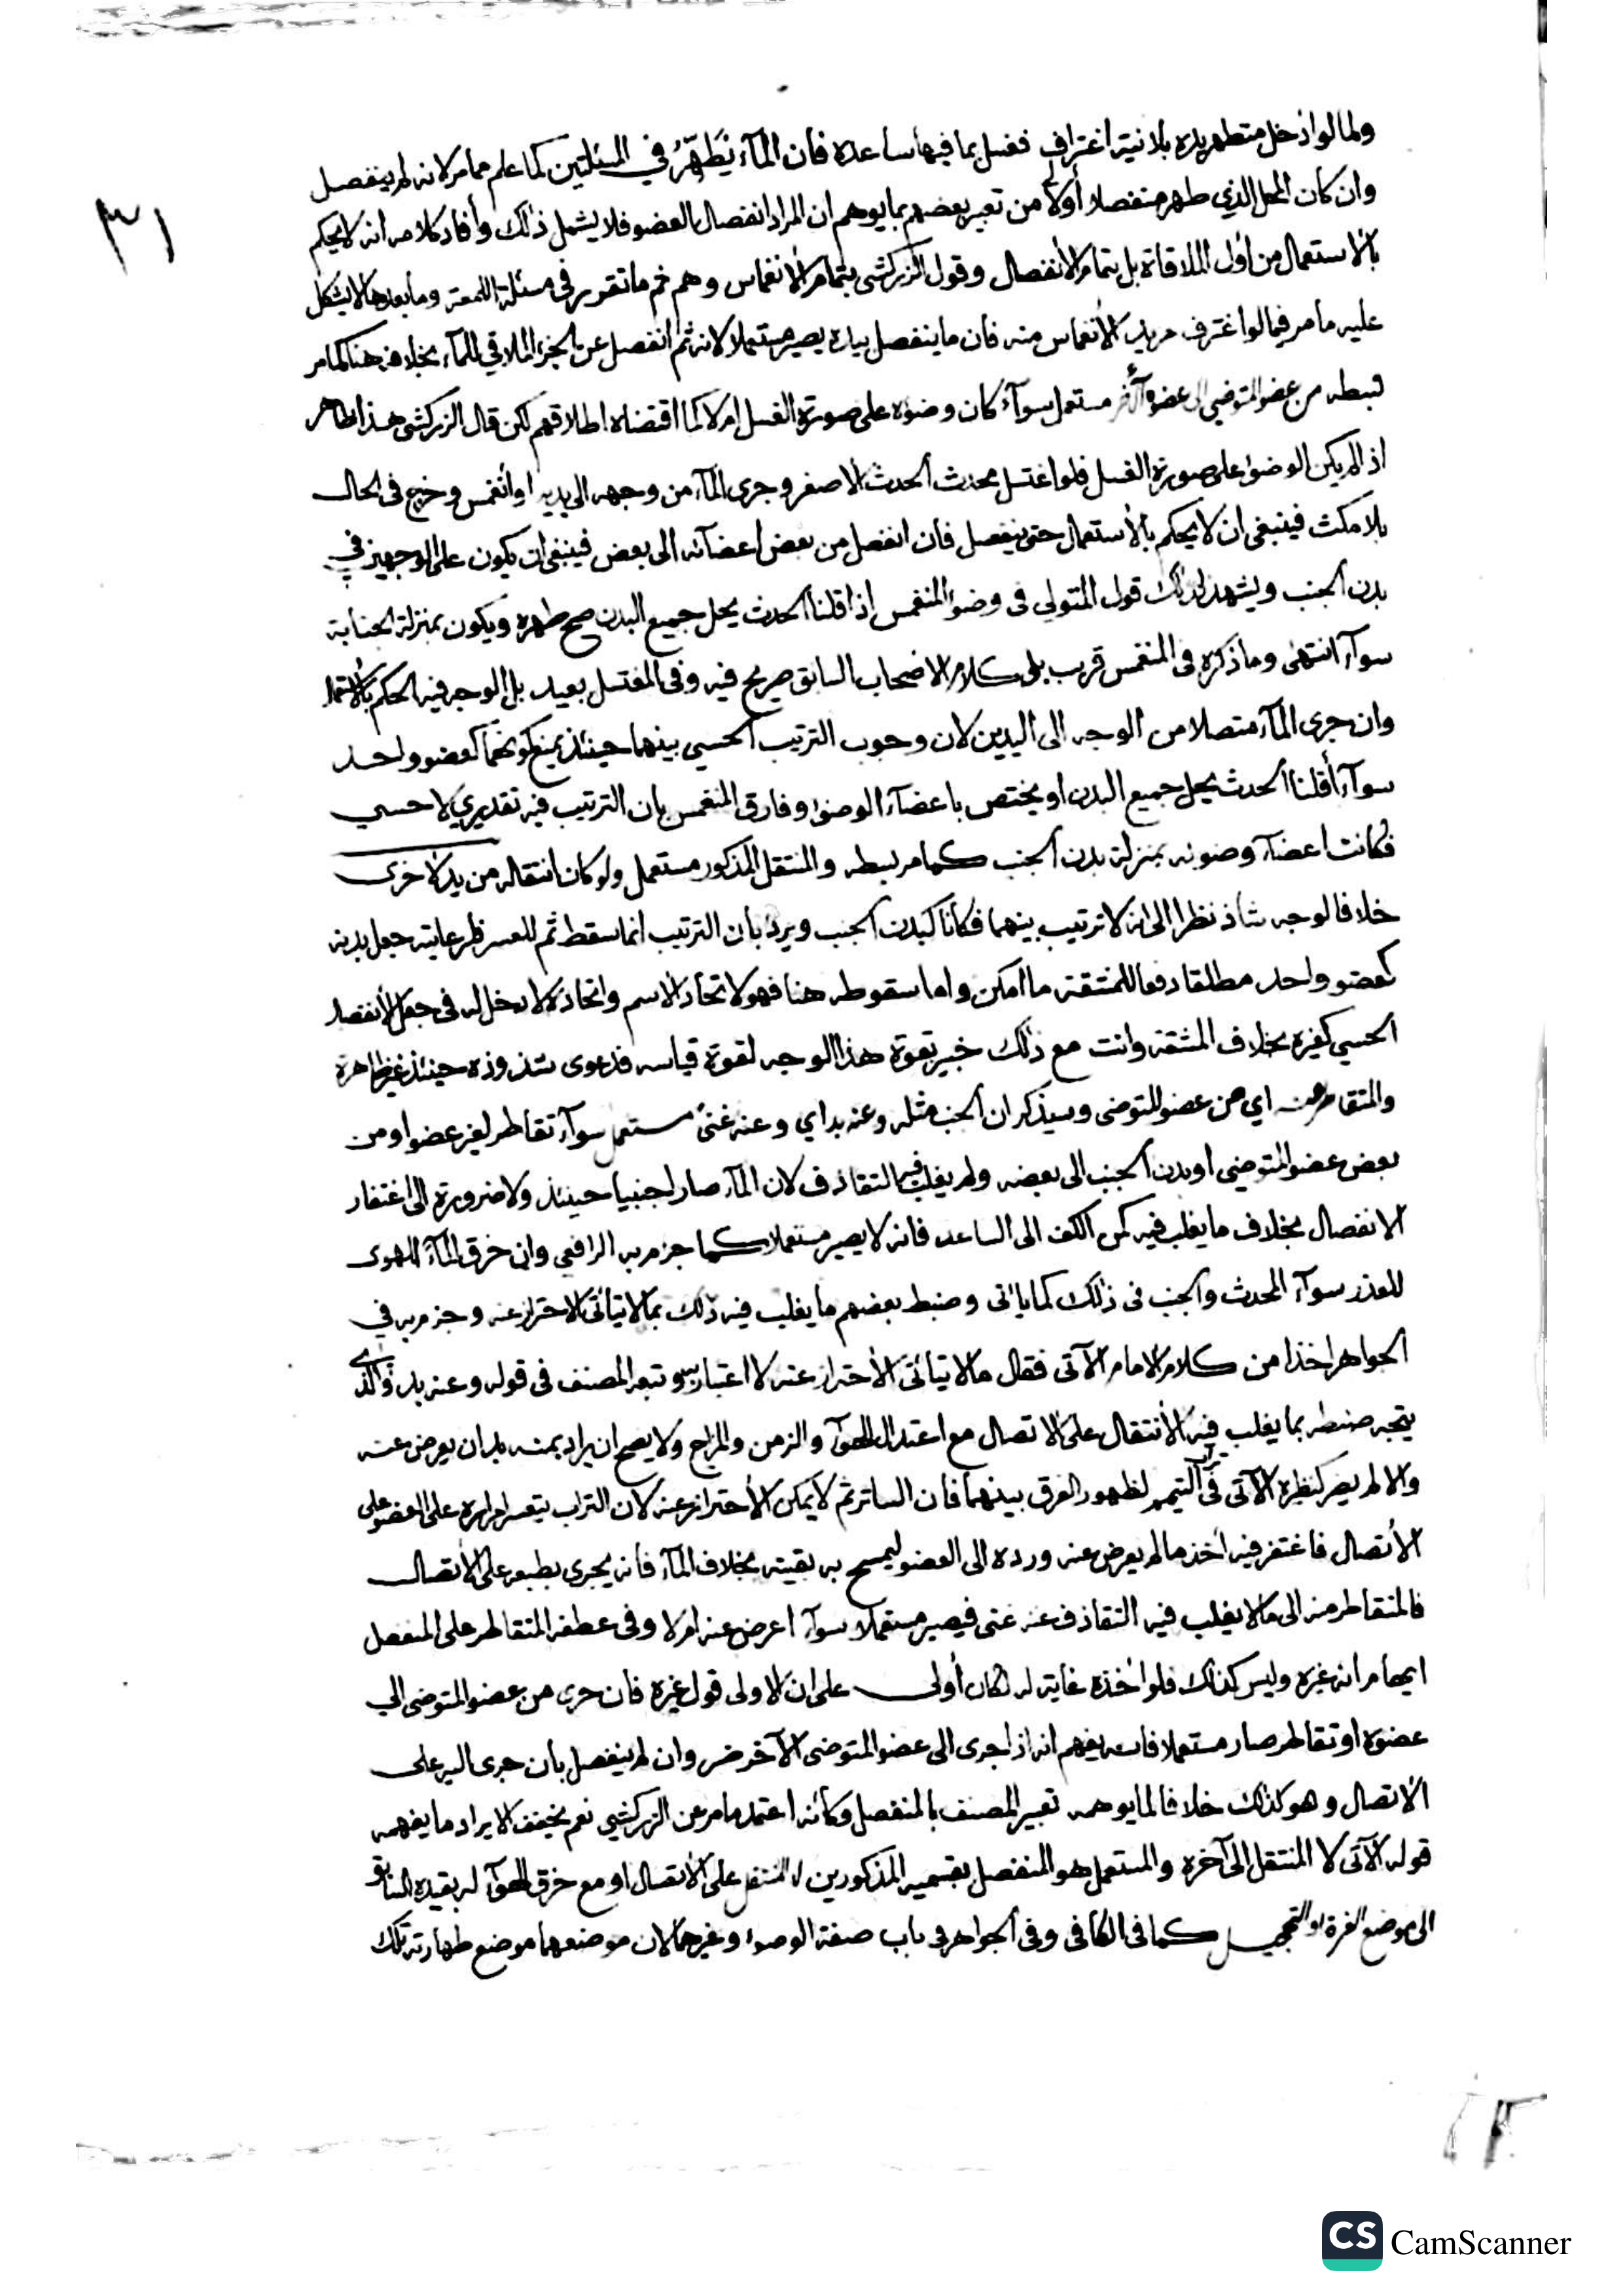 ٣١
ولما لو ادخل متطهر يده بلا نية اغتراف فغسل بما فيها ساعده فان المآء يطهر في المسئلتين كما علم مما مر لانه لم ينفصل
وان كان المحل الذي طهر منفصلا أولا من تعبير بعضهم بما يوهم ان المراد انفصال بالعضو فلا يشمل ذلك وأفاد كلامه انه لا يحكم
بالاستعمال من أول الملاقاة بل بتمام الانفصال وقول الزركشي بتمام الانغماس وهم ثم ما تقرر في مسئلة اللمعة وما بعدها لا يشكل
عليه ما مر فيما لو اغترف مريد الانغماس منه فان ما ينفصل بيده يصير مستعملا لانه ثم انفصل عن الجزء الملاقي للمآء بخلافه هنا كما مر
بسطه من عضو المتوضي الى عضوه الآخر مستعمل سوآء كان وضوءه على صورة الغسل ام لا كما اقتضاه اطلاقهم لكن قال الزركشي هذا ظاهر
اذا لم يكن الوضوء على صورة الغسل فلو اغتسل محدث الحدث الاصغر وجرى المآء من وجهه الى يديه او انغمس وخرج في الحال
بلا مكث فينبغي ان لا يحكم بالاستعمال حتى ينفصل فان انفصل من بعض اعضآئه الى بعض فينبغي ان يكون على الوجهين في
بدن الجنب ويشهد لذلك قول المتولي في وضوء المنغمس اذا قلنا الحدث يحل جميع البدن صح طهره ويكون بمنزلة الجنابة
سوآء انتهى وما ذكره في المنغمس قريب بل كلام الاصحاب السابق صريح فيه وفي المغتسل بعيد بل الوجه فيه الحكم بالاستعمال
وان جرى المآء متصلا من الوجه الى اليدين لان وجوب الترتيب الحسي بينهما حينئذ يمنع كونهما كعضو واحد
سوآء أقلنا الحدث يحل جميع البدن او يختص باعضآء الوضوء وفارق المنغمس بان الترتيب فيه تقديري لا حسي
فكانت اعضآء وضوئه بمنزلة بدن الجنب كما مر بسطه والمنتقل المذكور مستعمل ولو كان انتقاله من يد لاخرى
خلافا لوجه شاذ نظرا الى انه لا ترتيب بينهما فكانا كبدن الجنب ويرد بان الترتيب انما سقط ثم للعسر فلرعايته جعل بدنه
كعضو واحد مطلقا دفعا للمشقة ما امكن واما سقوطه هنا فهو لاتحاد الاسم واتحاده لا دخل له في جعل الانفصال
الحسي كغيره بخلاف المشقة وانت مع ذلك خبير بقوة هذا الوجه لقوة قياسه فدعوى شذوذه حينئذ غير ظاهرة
والمتقاطر منه اي من عضو المتوضي وسيذكر ان الجنب مثله وعنه بد اي وعنه غنى مستعمل سوآء تقاطر لغير عضو او من
بعض عضو المتوضي او بدن الجنب الى بعضه ولم يغلب فيه التقاذف لان المآء صار اجنبيا حينئذ ولا ضرورة الى اغتفار
الانفصال بخلاف ما يغلب فيه كمن الكف الى الساعد فانه لا يصير مستعملا كما جزم به الرافعي وان خرق المآء الهوى
للعذر سوآء المحدث والجنب في ذلك كما ياتي وضبط بعضهم ما يغلب فيه ذلك بما لا يتاتى الاحتراز عنه وجزم به في
الجواهر اخذا من كلام الامام الآتي فقال ما لا يتاتى الاحتراز عنه لا اعتبار به وتبعه المصنف في قوله وعنه بد والذي
يتجه ضبطه بما يغلب فيه الانتقال على الاتصال مع اعتدال الهوآء والزمن والمزاج ولا يصح ان يراد بمنه بد ان يعرض عنه
والا لم يصر كنظيره الآتي في تراب التيمم لظهور الفرق بينهما فان الساتر ثم لا يمكن الاحتراز عنه لان التراب يتعسر امراره على العضو على
الاتصال فاغتفر فيه اخذ ما لم يعرض عنه ورده الى العضو ليمسح به بقيته بخلاف المآء فانه يجري بطبعه على الاتصال
فالمتقاطر منه الى ما لا يغلب فيه التقاذف عنه غنى فيصير مستعملا سوآء اعرض عنه ام لا وفي عطفه المتقاطر على المنفصل
ايهام انه غيره وليس كذلك فلو اخذه غاية له لكان أولى على ان الاولى قول غيره فان جرى من عضو المتوضي الى
عضوه او تقاطر صار مستعملا فانه يفهم انه اذا جرى الى عضو المتوضي الآخر ضر وان لم ينفصل بأن جرى اليه على
الاتصال وهو كذلك خلافا لما يوهمه تعبير المصنف بالمنفصل وكأنه اعتمد ما مر عن الزركشي نعم يخفف الايراد ما يفهمه
قوله الآتي لا المنتقل الى آخره والمستعمل هو المنفصل بقسميه المذكورين لا المنتقل على الاتصال او مع خرق الهوآء له بقيده السابق
الى موضع الغرة او التحجيل كما في الكافي وفي الجواهر في باب صفة الوضوء وغيرهما لان موضعهما موضع طهارته تلك
CS CamScanner